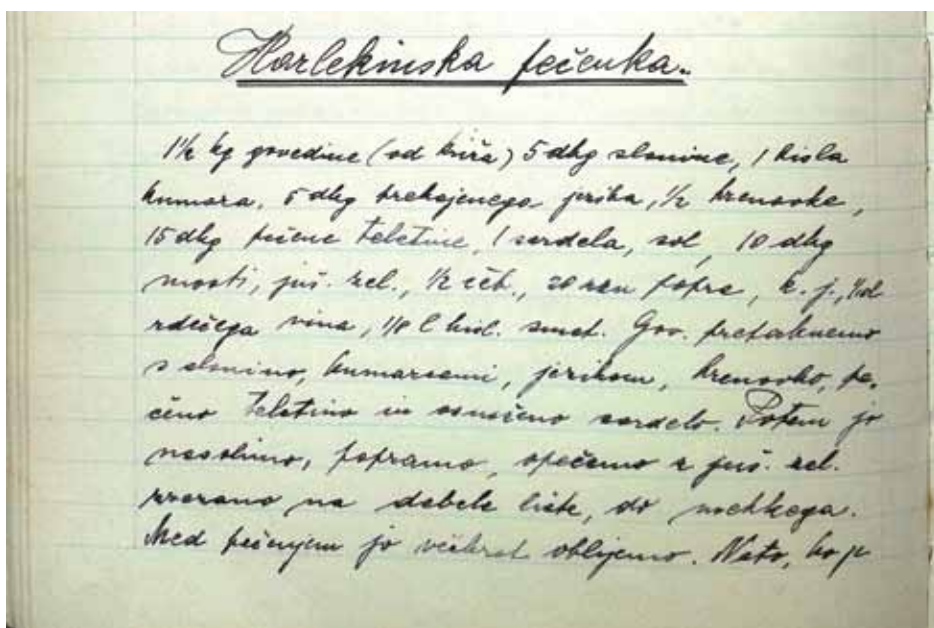 Harlekinska pečenka.
1½ kg govedine (od križa) 5 dkg slanine, 1 kisla
kumara, 5 dkg prekajenega jezika, ½ hrenovke,
15 dkg pečene teletine, 1 sardela, sol, 10 dkg
masti, juš. zel., ½ čeb., 20 zrn popra, k. j., ⅛ l
rdečega vina, ⅛ l kisl. smet. Gov. pretaknemo
s slanino, kumarcami, jezikom, hrenovko, pe-
čeno teletino in osnaženo sardelo. Potem jo
nasolimo, popramo, opečemo z juš. zel.
rezano na debele liste, do mehkega.
Med pečenjem jo večkrat oblijemo. Nato, ko je